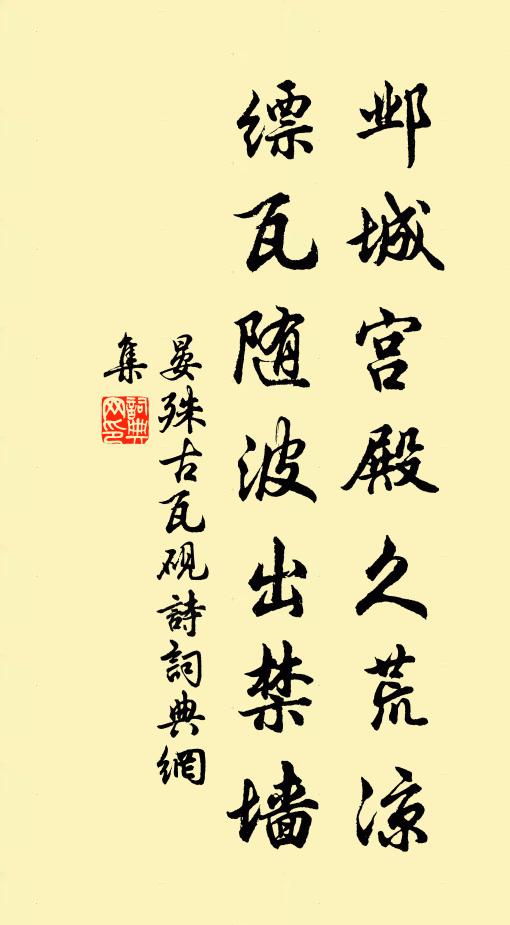 邺城宫殿久荒凉
缥瓦随波出禁墙
晏殊古瓦砚詩詞典網
集
詞典網印